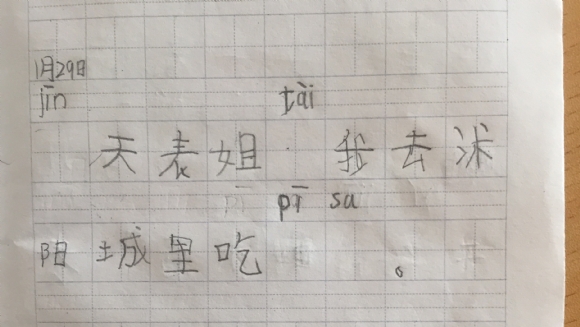 1月29日
jīn tài
天表姐 我去沭
pī sa
阳城里吃 。